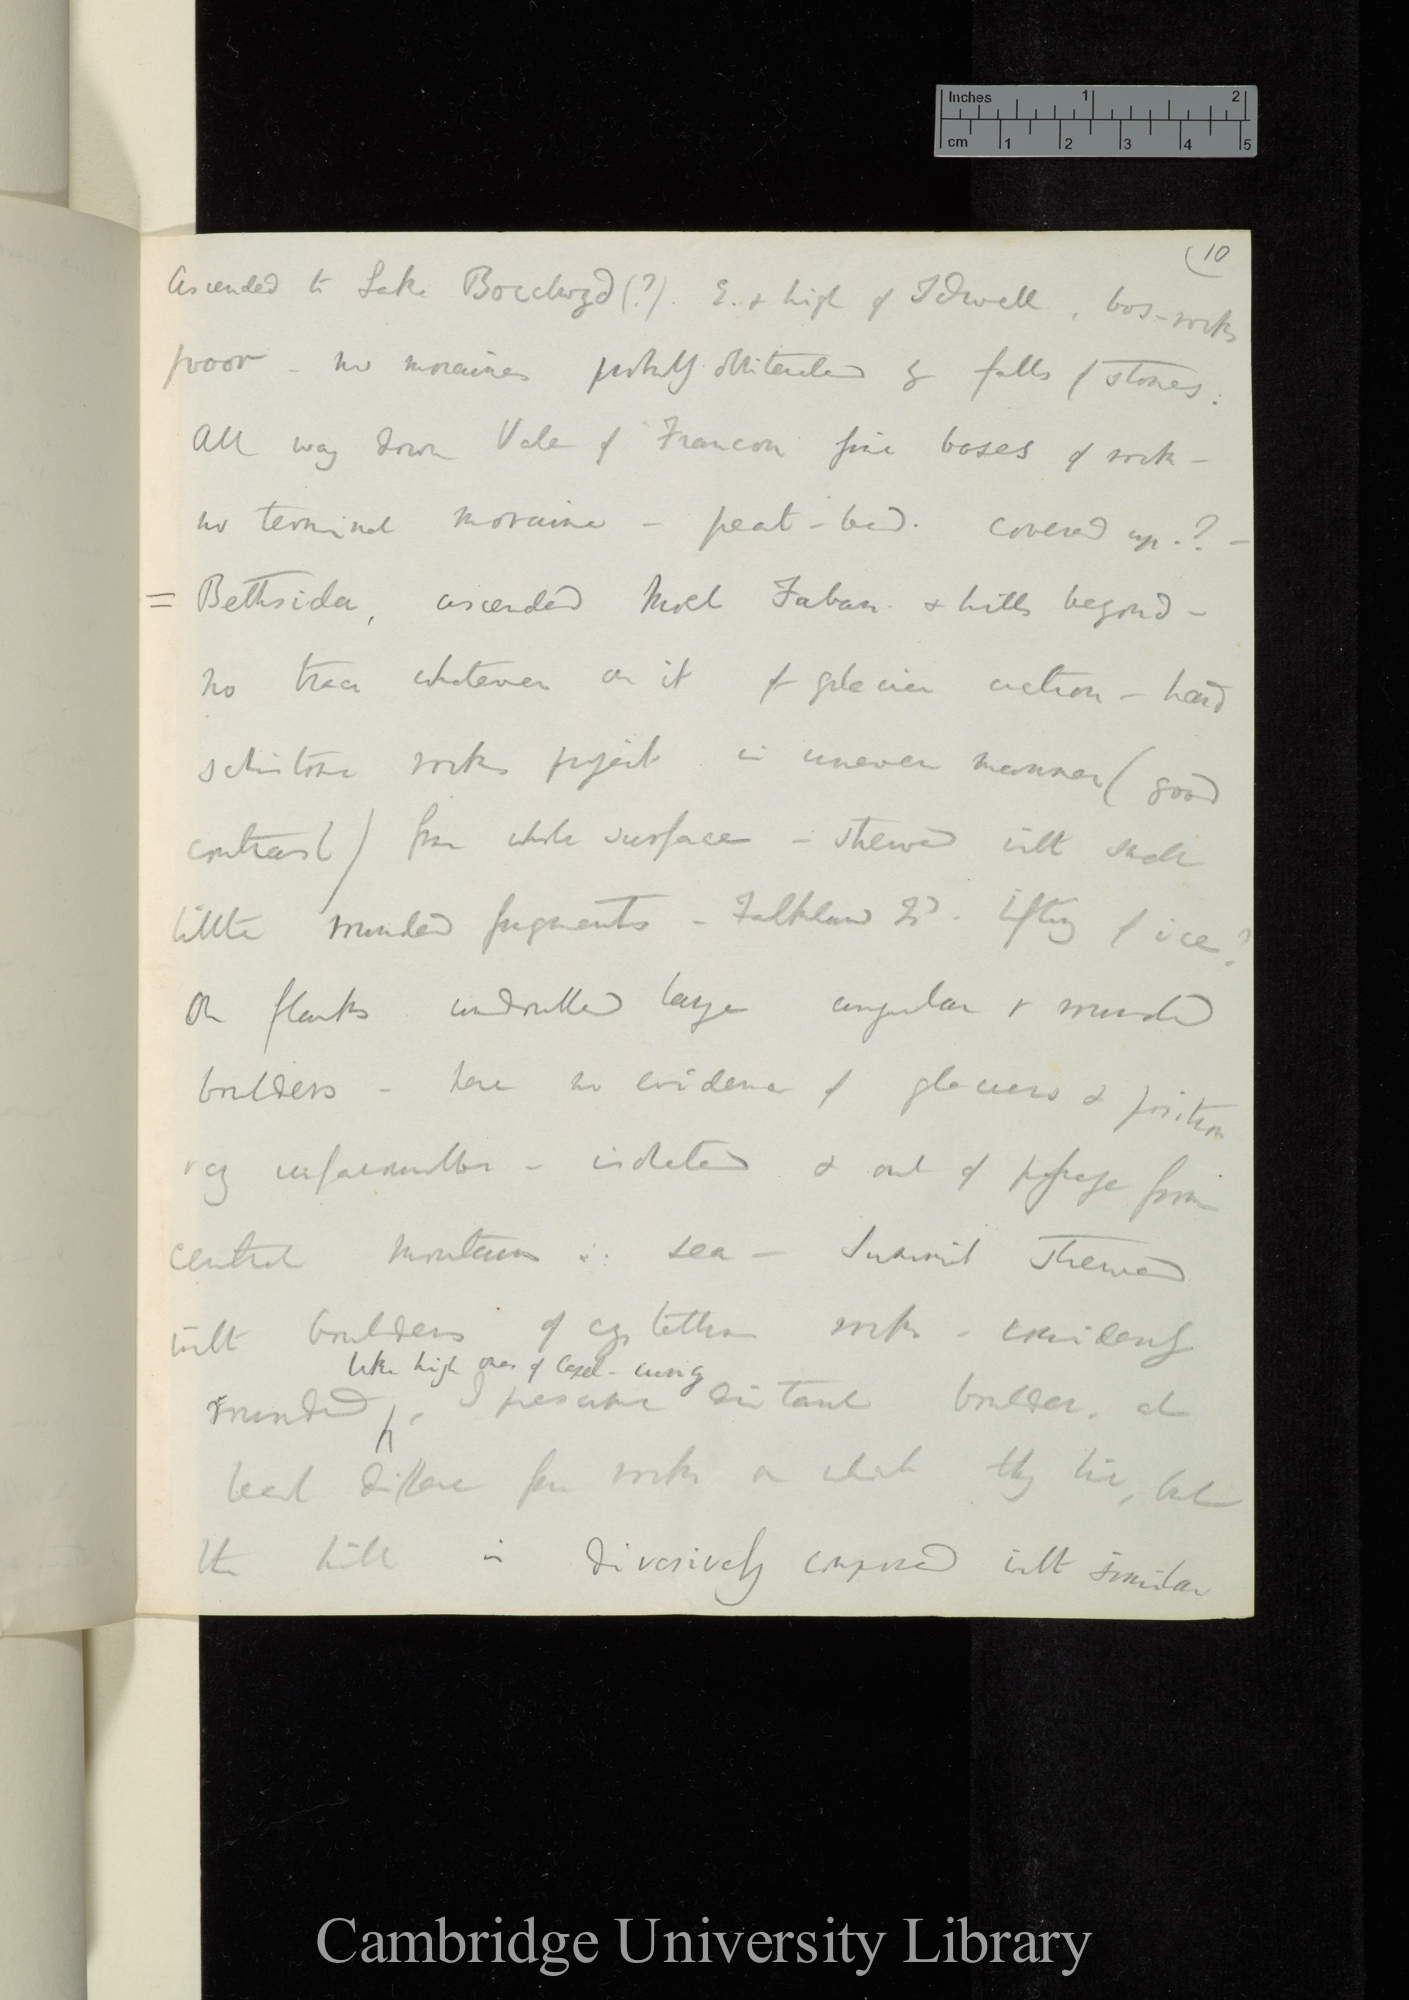 (10
Ascended to Lake Bocclwyd (?). E. & high of Idwell, bos-rocks
poor – no moraines probably obliterated by falls of stones.
All way down Vale of Francon fine boses of rock –
no terminal moraine – peat-bed. covered up.? –
= Bethsida, ascended Moel Faban. & hills beyond –
no trace whatever on it of glacier action – hard
schistose rocks project in uneven manner (good
contrast) from whole surface – strewed with small
little rounded fragments – Falkland Isd. lifting of ice?
On flanks large angular & rounded
boulders – here no evidence of glaciers & position
very unfavourable – isolated & out of passage from
central mountains ∴ sea – Summit strewed
with boulders of rocks – evidently
like high ones of Capel-curig
rounded, I presume distant boulders, at
least different from rocks on which they lie, but
the hill is diversively composed with similar
Inches 1 2
cm 1 2 3 4 5
Cambridge University Library